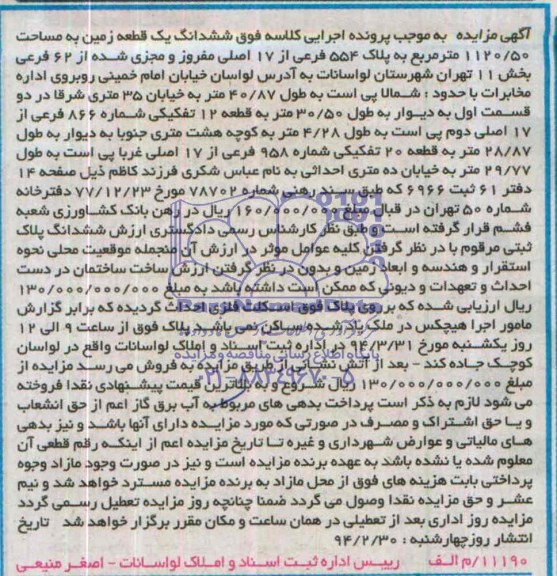 آگهی مزایده به موجب پرونده اجرایی کلاسه فوق ششدانگ یک قطعه زمین به مساحت
۱۱۲۰/۵۰ مترمربع به پلاک ۵۵۴ فرعی از ۱۷ اصلی مفروز و مجزی شده از ۶۲ فرعی
بخش ۱۱ تهران شهرستان لواسانات به آدرس لواسان خیابان امام خمینی روبروی اداره
مخابرات با حدود : شمالا پی است به طول ۴۰/۸۷ متر به خیابان ۳۵ متری شرقا در دو
قسمت اول به دیوار به طول ۳۰/۵۰ متر به قطعه ۱۲ تفکیکی شماره ۸۶۶ فرعی از
۱۷ اصلی دوم پی است به طول ۴/۲۸ متر به کوچه هشت متری جنوبا به دیوار به طول
۲۸/۸۷ متر به قطعه ۲۰ تفکیکی شماره ۹۵۸ فرعی از ۱۷ اصلی غربا پی است به طول
۲۹/۷۷ متر به خیابان ده متری احداثی به نام عباس شکری فرزند کاظم ذیل صفحه ۱۴
دفتر ۶۱ ثبت ۶۹۶۶ که طبق سند رهنی شماره ۷۸۷۰۲ مورخ ۷۷/۱۲/۲۳ دفترخانه
شماره ۵۰ تهران در قبال مبلغ ۱۶۰/۰۰۰/۰۰۰ ریال در رهن بانک کشاورزی شعبه
فشم قرار گرفته است و طبق نظر کارشناس رسمی دادگستری ارزش ششدانگ پلاک
ثبتی مرقوم با در نظر گرفتن کلیه عوامل موثر در ارزش آن منجمله موقعیت محلی نحوه
استقرار و هندسه و ابعاد زمین و بدون در نظر گرفتن ارزش ساخت ساختمان در دست
احداث و تعهدات و دیونی که ممکن است داشته باشد به مبلغ ۱۳۰/۰۰۰/۰۰۰/۰۰۰
ریال ارزیابی شده که بر روی پلاک فوق اسکلت فلزی احداث گردیده که برابر گزارش
مامور اجرا هیچکس در ملک یاد شده ساکن نمی باشد پلاک فوق از ساعت ۹ الی ۱۲
روز یکشنبه مورخ ۹۴/۳/۳۱ در اداره ثبت اسناد و املاک لواسانات واقع در لواسان
کوچک جاده کند - بعد از آتش نشانی از طریق مزایده به فروش می رسد مزایده از
مبلغ ۱۳۰/۰۰۰/۰۰۰/۰۰۰ ریال شروع و به بالاترین قیمت پیشنهادی نقدا فروخته
می شود لازم به ذکر است پرداخت بدهی های مربوط به آب برق گاز اعم از حق انشعاب
و یا حق اشتراک و مصرف در صورتی که مورد مزایده دارای آنها باشد و نیز بدهی
های مالیاتی و عوارض شهرداری و غیره تا تاریخ مزایده اعم از اینکه رقم قطعی آن
معلوم شده یا نشده باشد به عهده برنده مزایده است و نیز در صورت وجود مازاد وجوه
پرداختی بابت هزینه های فوق از محل مازاد به برنده مزایده مسترد خواهد شد و نیم
عشر و حق مزایده نقدا وصول می گردد ضمنا چنانچه روز مزایده تعطیل رسمی گردد
مزایده روز اداری بعد از تعطیلی در همان ساعت و مکان مقرر برگزار خواهد شد تاریخ
انتشار روز چهارشنبه : ۹۴/۲/۳۰
۱۱۱۹۰/م الف رییس اداره ثبت اسناد و املاک لواسانات - اصغر منیعی
پایگاه اطلاع رسانی مناقصه و مزایده